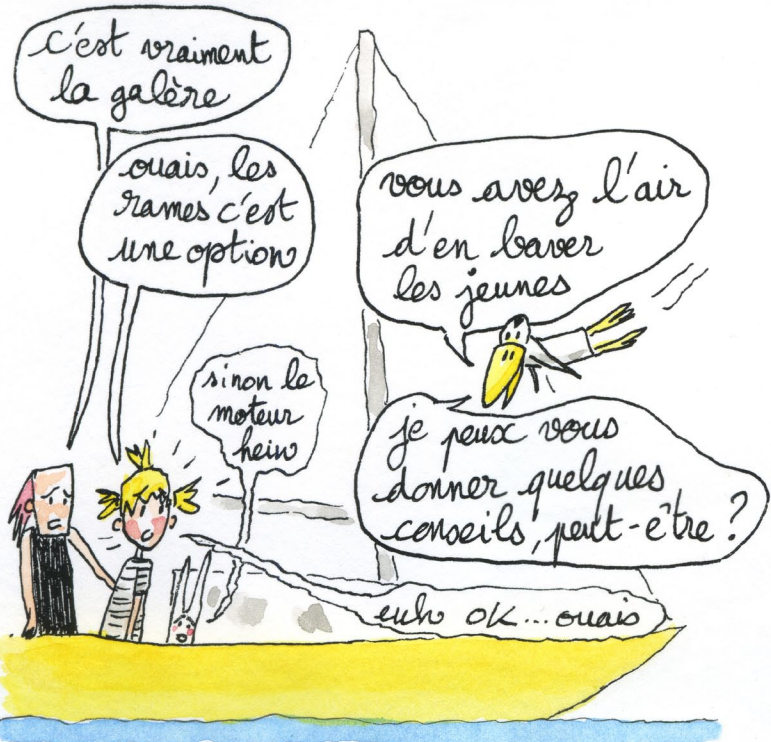 c'est vraiment
la galère
ouais, les
rames c'est
une option
sinon le
moteur
hein
vous avez l'air
d'en baver
les jeunes
je peux vous
donner quelques
conseils, peut-être ?
euh OK... ouais